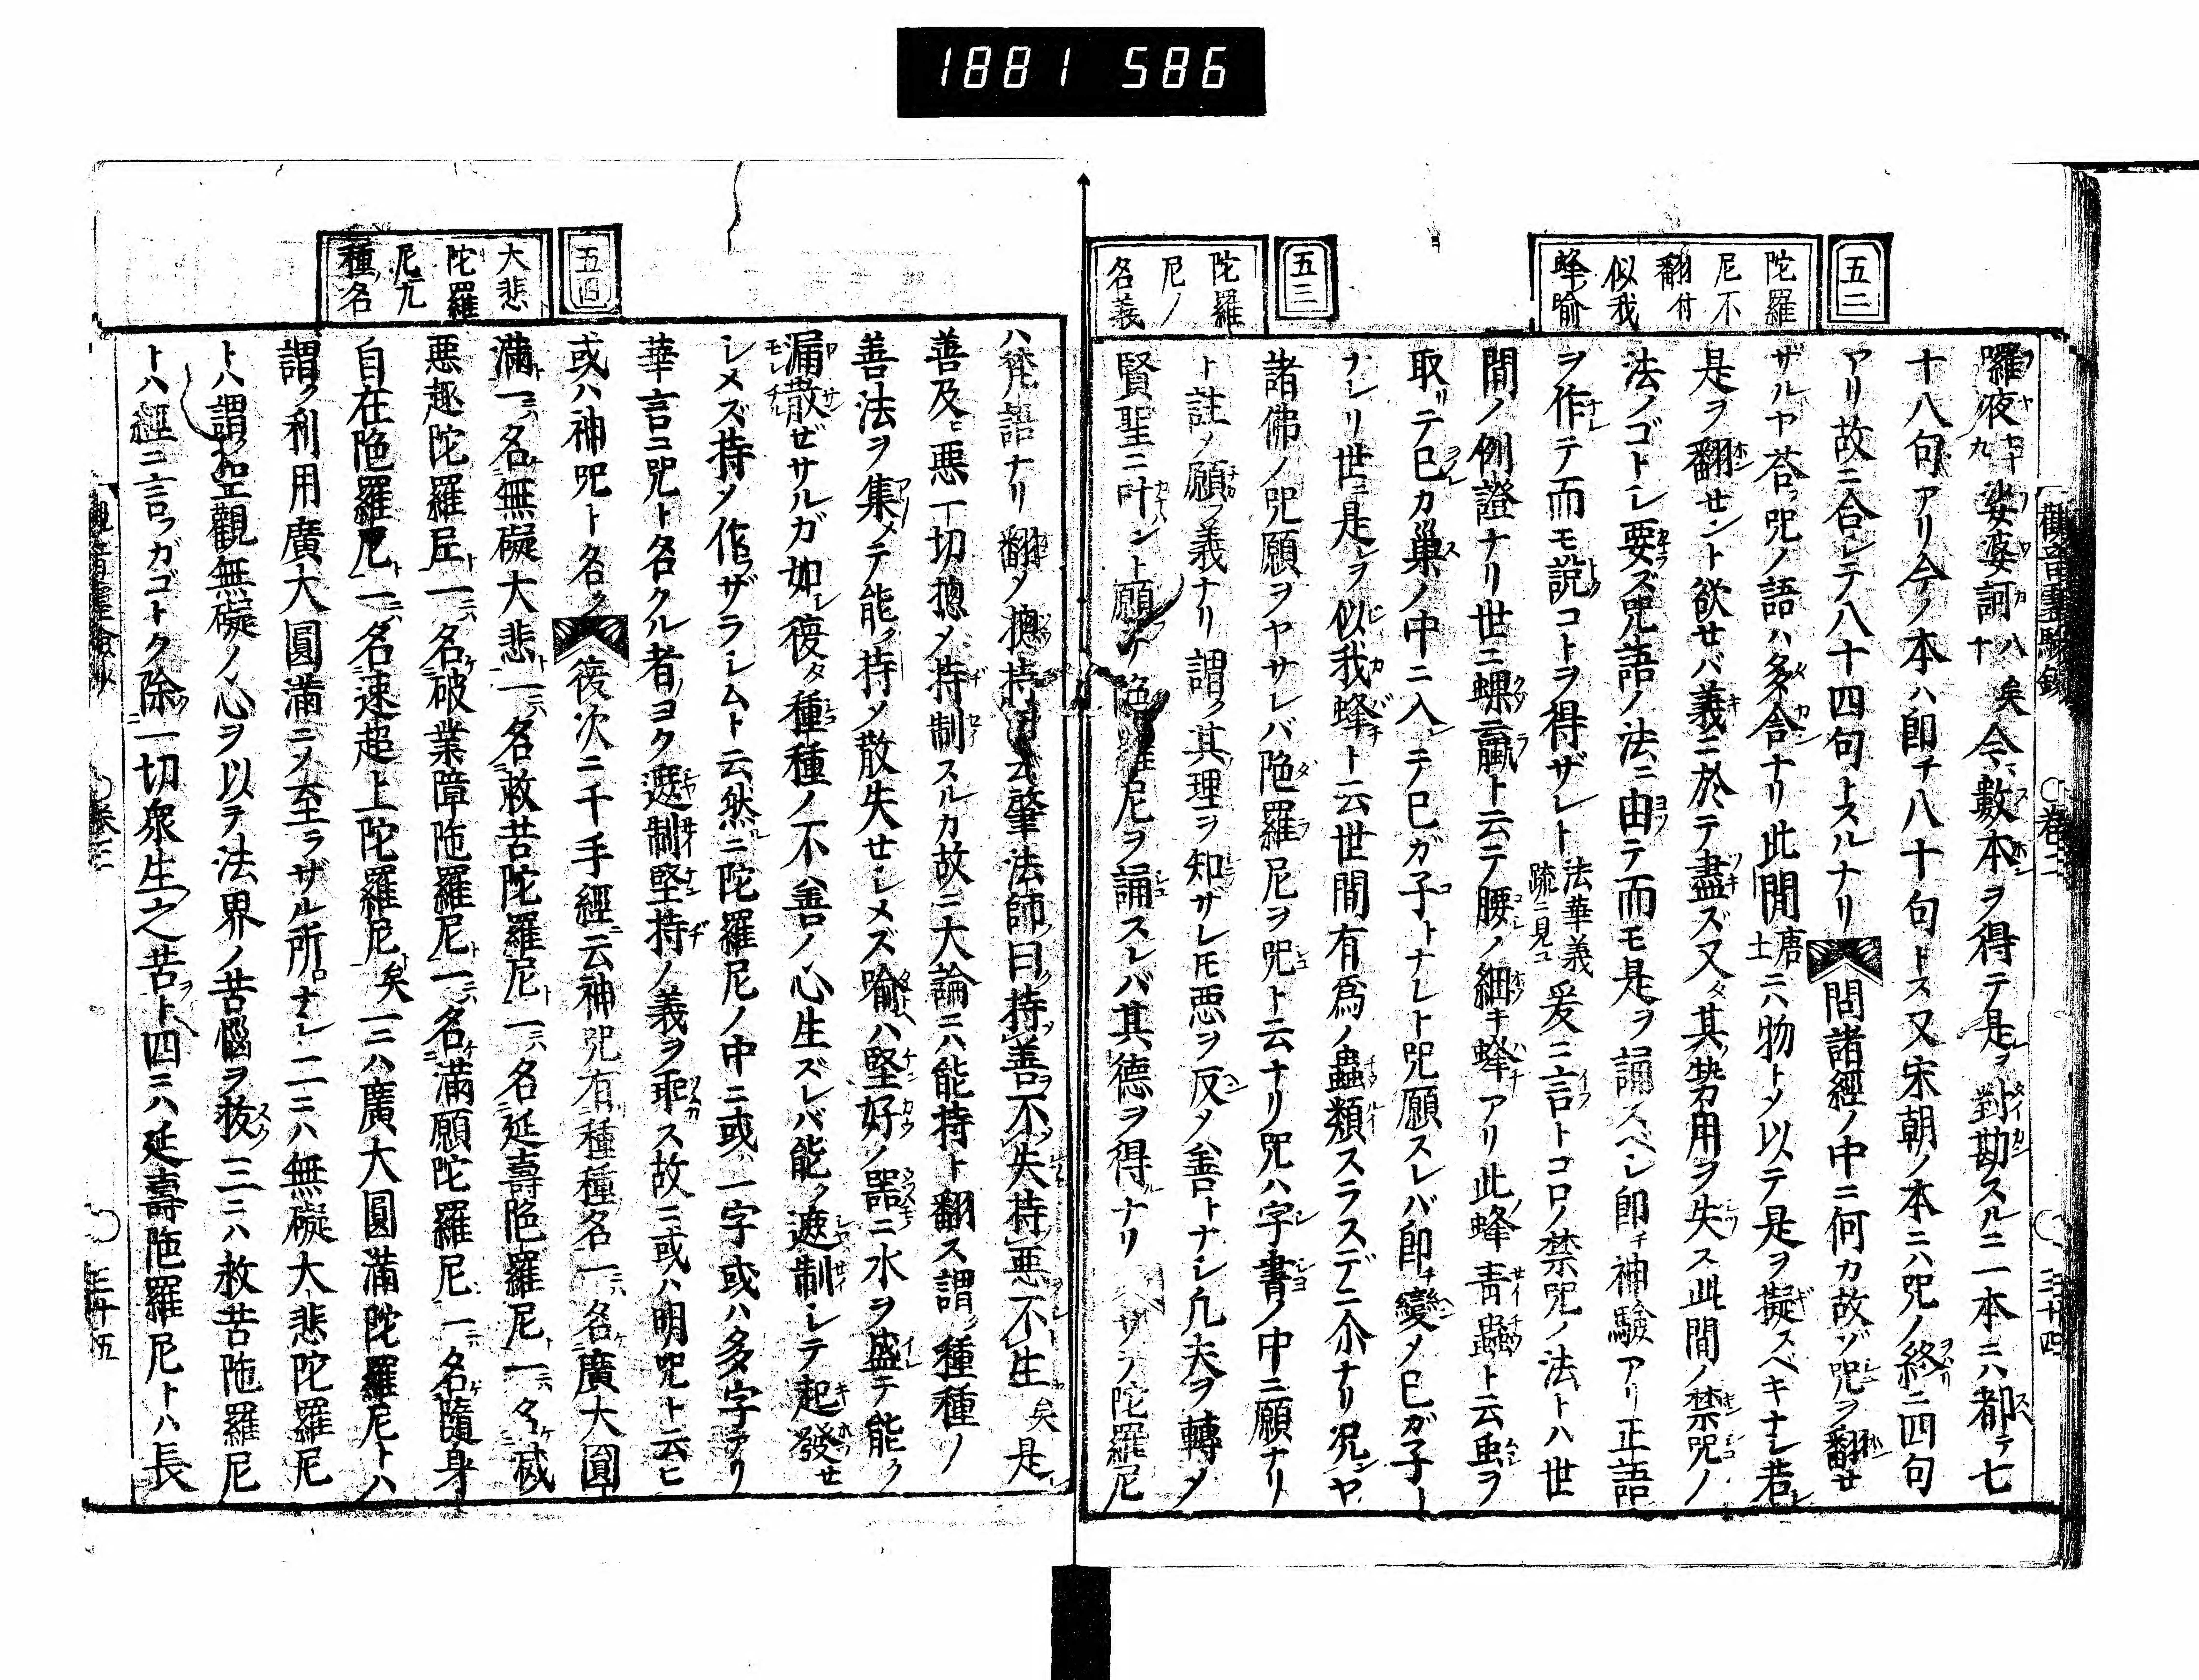 1881 586
五二
陀羅
尼不
翻付
似我
蜂喩
五三
陀羅
尼ノ
名義
羅夜七十九娑婆訶八十矣今數本ヲ得テ是ヲ對勘スルニ一本ニハ都テ七
十八句アリ今ノ本ハ即チ八十句トス又宋朝ノ本ニハ咒ノ終ニ四句
アリ故ニ合シテ八十四句トスルナリ問諸經ノ中ニ何カ故ゾ咒ヲ翻セ
ザルヤ荅ッ咒ノ語ハ多含ナリ此間唐土ニハ物トメ以テ是ヲ擬スベキナシ若シ
是ヲ翻セント欲セバ義ニ於テ盡ズ又タ其勢用ヲ失ス此間ノ禁咒ノ
法ノゴトシ要ズ咒語ノ法ニ由テ而モ是ヲ誦スベシ即チ神驗アリ正語
ヲ作テ而モ説コトヲ得ザレト法華義疏ニ見ユ爰ニ言トコロノ禁咒ノ法トハ世
間ノ例證ナリ世ニ蜾蠃ト云テ腰ノ細キ蜂アリ此蜂青蟲ト云虫ヲ
取リテ己カ巢ノ中ニ入レテ己ガ子トナレト咒願スレバ即チ變メ己ガ子ト
ナレリ世ニ是レヲ似我蜂ト云世間有爲ノ蟲類スラスデニ尒ナリ況ンヤ
諸佛ノ咒願ヲヤサレバ陁羅尼ヲ咒ト云ナリ咒ハ字書ノ中ニ願ナリ
ト註ノ願フ義ナリ謂ク其理ヲ知サレ𪜈悪ヲ反メ善トナシ凡夫ヲ轉メ
賢聖ニ叶ハント願テ陁羅尼ヲ誦スレバ其德ヲ得ルナリ サラ陀羅尼
五四
大悲
陀羅
尼九
種名
ハ梵語ナリ翻メ摠持ト云肇法師ノ曰ク持善不失持悪不生矣是レ
善及ヒ悪一切摠メ持制スルカ故ニ大論ニハ能持ト翻ス謂ク種種ノ
善法ヲ集メテ能ク持ノ散失セシメズ喩ハ堅好ノ器ニ水ヲ盛テ能ク
漏散ゼサルガ如シ復タ種種ノ不善ノ心生ズレバ能ク遮制シテ起發セ
シメズ持ノ作ラザラシムト云然ルニ陀羅尼ノ中ニ或ハ一字或ハ多字アリ
華言ニ咒ト名クル者ノヨク遮制堅持ノ義ヲ兼ス故ニ或ハ明咒ト云ヒ
或ハ神咒ト名ク復次ニ千手經ニ云神咒有種種名一ニハ名廣大圓
滿一ニハ名無礙大悲ト一ニハ名救苦陀羅尼ト一ニハ名延壽陁羅尼ト一ニハ名滅
悪趣陀羅尼ト一ニハ名破業障陁羅尼ト一ニハ名滿願陀羅尼一ニハ名隨身
自在陁羅尼ト一ニハ名速超上陀羅尼ト矣一ニハ廣大圓滿陀羅尼トハ
謂ク利用廣大圓滿ニメ至ラザル所ロナシ二ニハ無礙大悲陀羅尼
トハ謂ク空觀無礙ノ心ヲ以テ法界ノ苦惱ヲ救フ三ニハ救苦陁羅尼
トハ經ニ言フガゴトク除一切衆生之苦ヲト四ニハ延壽陁羅尼トハ長